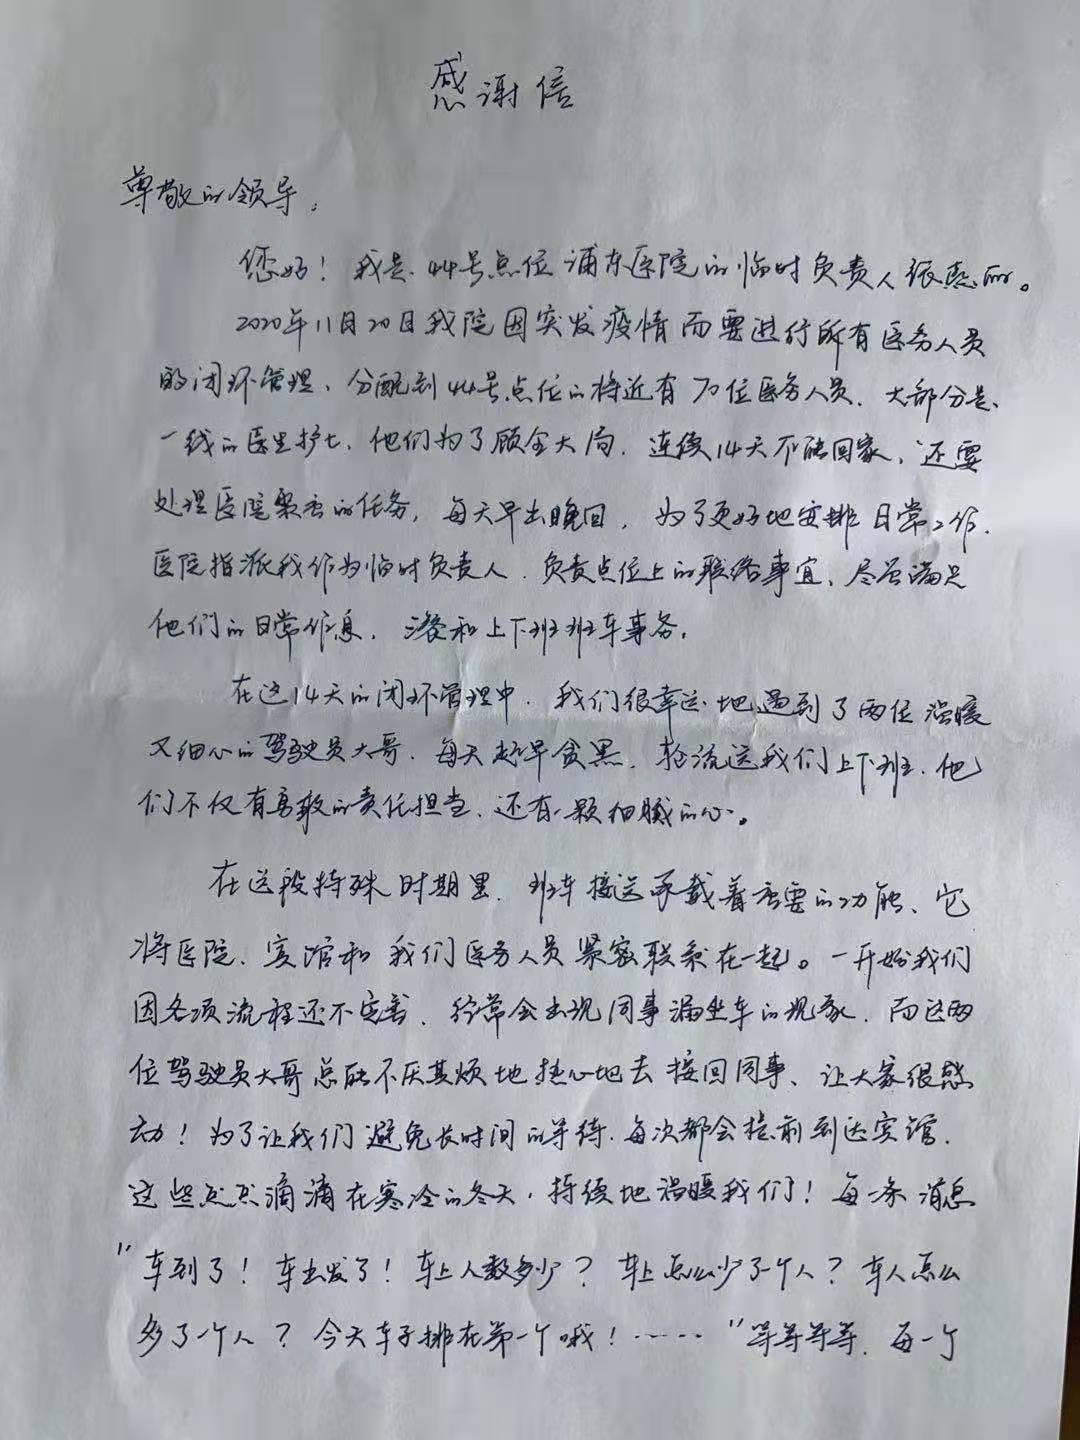 感谢信
尊敬的领导,
您好！我是44号点位浦东医院的临时负责人张
2020年11月20日我院因突发疫情而要进行所有医务人员
的闭环管理、分配到44号点位的将近有70位医务人员、大部分是
一线的医生护士、他们为了顾全大局、连续14天不能回家、还要
处理医院繁重的任务，每天早出晚回，为了更好地安排日常工作、
医院指派我作为临时负责人、负责点位上的联络事宜、尽量满足
他们的日常作息、和上下班班车事务。
在这14天的闭环管理中、我们很幸运地遇到了两位温暖
又细心的驾驶员大哥、每天起早贪黑、轮流送我们上下班、他
们不仅有勇敢的责任担当、还有一颗细腻的心。
在这段特殊时期里、班车接送承载着重要的功能、它
将医院、宾馆和我们医务人员紧密联系在一起。一开始我们
因各项流程还不完善、经常会出现同事漏坐车的现象、而这两
位驾驶员大哥总能不厌其烦地热心地去接回同事、让大家很感
动！为了让我们避免长时间的等待、每次都会提前到达宾馆、
这些点点滴滴在寒冷的冬天，持续地温暖我们！每一条消息
"车到了！车出发了！车上人数多少？车上怎么少了个人？车人怎么
多了一个人？今天车子排在第一个哦！……"等等等等、每一个